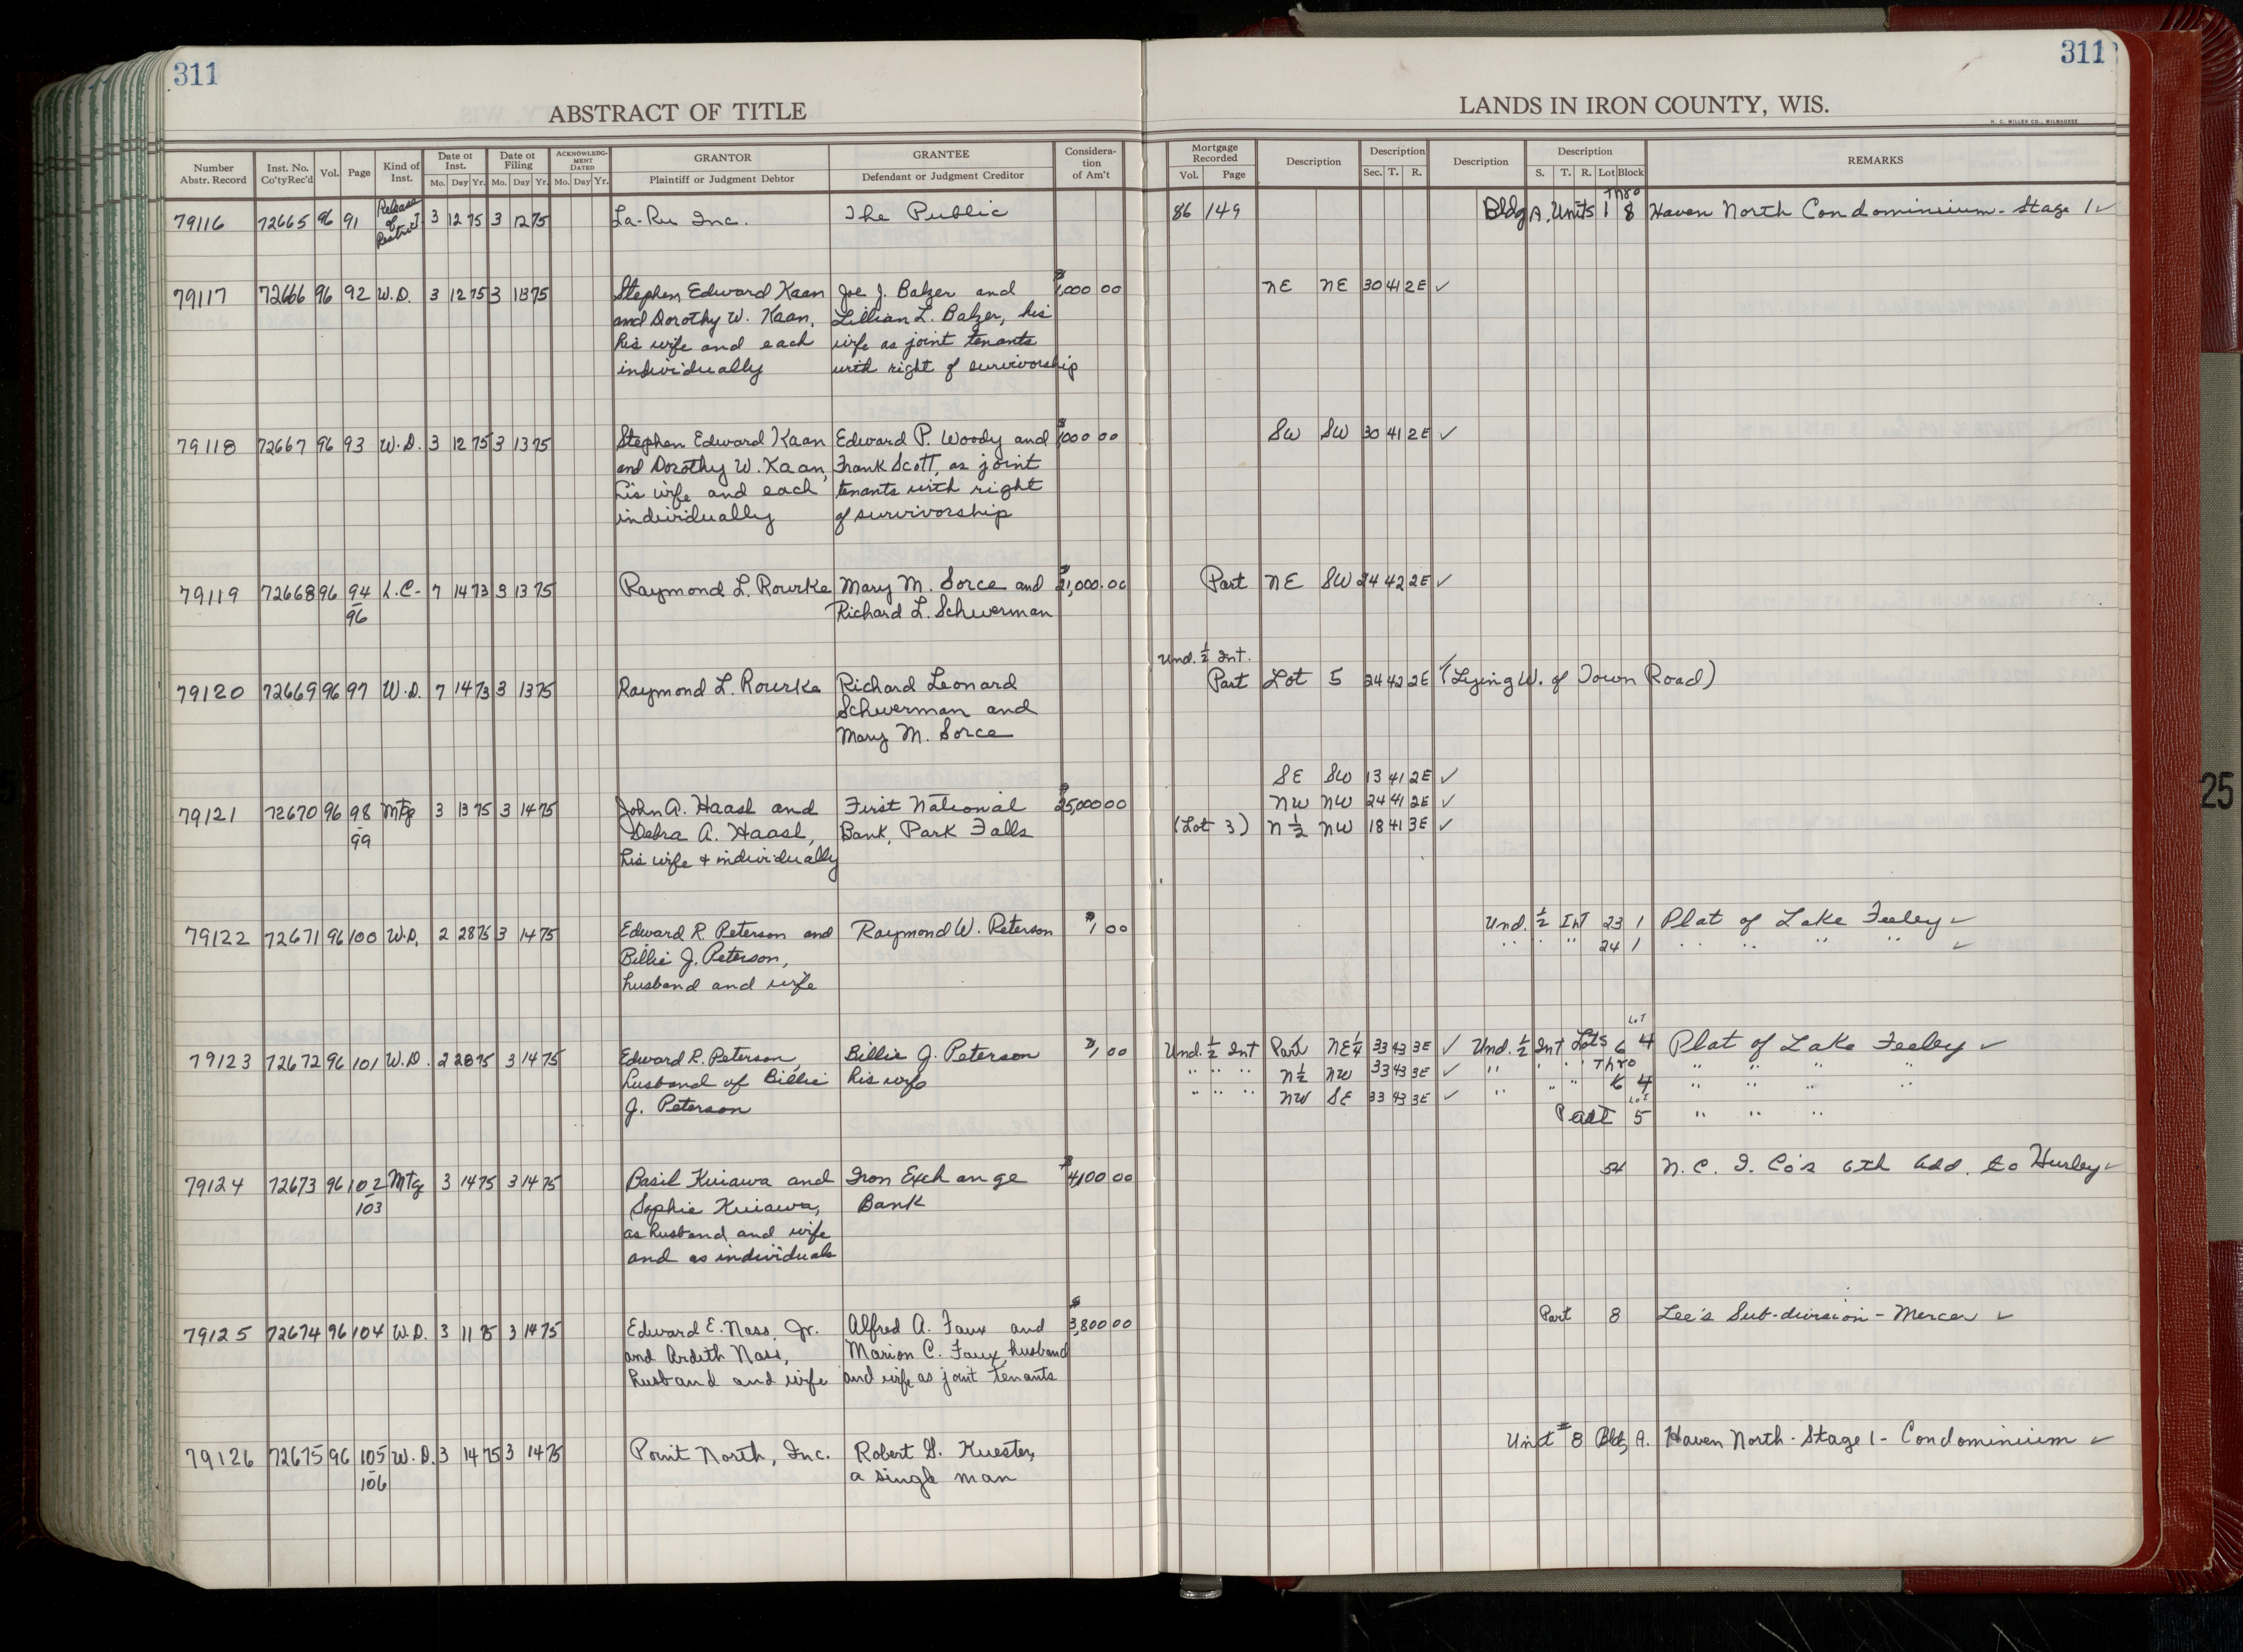 311
311
ABSTRACT OF TITLE
LANDS IN IRON COUNTY, WIS.
H. C. MILLER CO., MILWAUKEE
Number Abstr. Record
Inst. No. Co'ty Rec'd
Vol.
Page
Kind of Inst.
Date of Inst. Mo. Day Yr.
Date of Filing Mo. Day Yr.
ACKNOWLEDGMENT DATED Mo. Day Yr.
GRANTOR Plaintiff or Judgment Debtor
GRANTEE Defendant or Judgment Creditor
Consideration of Am't
Mortgage Recorded Vol. Page
Description
Description Sec. T. R.
Description
Description S. T. R. Lot Block
REMARKS
79116 72665 96 91 Release of Restrict 3 12 75 3 12 75 La-Ru Inc. The Public 86 149 Bldg A, Units 1 Thro 8 Haven North Condominium - Stage 1 ✓
79117 72666 96 92 W.D. 3 12 75 3 13 75 Stephen Edward Kaan Joe J. Balzer and ,000 00 NE NE 30 41 2E ✓
and Dorothy W. Kaan, Lillian L. Balzer, his
his wife and each wife as joint tenants
individually with right of survivorship
79118 72667 96 93 W.D. 3 12 75 3 13 75 Stephen Edward Kaan Edward P. Woody and ,000 00 SW SW 30 41 2E ✓
and Dorothy W. Kaan, Frank Scott, as joint
his wife and each tenants with right
individually of survivorship
79119 72668 96 94 L.C. 7 14 73 3 13 75 Raymond L. Rourke Mary M. Sorce and $21,000.00 Part NE SW 24 42 2E ✓
- 96 Richard L. Schwerman
Und. ½ Int.
79120 72669 96 97 W.D. 7 14 73 3 13 75 Raymond L. Rourke Richard Leonard Part Lot 5 24 42 2E ✓ (Lying W. of Town Road)
Schwerman and
Mary M. Sorce
SE SW 13 41 2E ✓
79121 72670 96 98 Mtg 3 13 75 3 14 75 John A. Haasl and First National $25,000 00 NW NW 24 41 2E ✓
- 99 Debra A. Haasl, Bank, Park Falls (Lot 3) N½ NW 18 41 3E ✓
his wife + individually
79122 72671 96 100 W.D. 2 28 75 3 14 75 Edward R. Peterson and Raymond W. Peterson $1 00 Und. ½ Int 23 1 Plat of Lake Feeley ✓
" " " 24 1 " " " " ✓
Billie J. Peterson,
husband and wife
79123 72672 96 101 W.D. 2 28 75 3 14 75 Edward R. Peterson, Billie J. Peterson $1 00 Und. ½ Int Part NE¼ 33 43 3E ✓ Und. ½ Int Lots 6 Lot 4 Plat of Lake Feeley ✓
husband of Billie his wife " " " N½ NW 33 43 3E ✓ " " " Thro " " " "
J. Peterson " " " NW SE 33 43 3E ✓ " " " 4 " " " "
Part Lot 5 " " "
79124 72673 96 102 Mtg 3 14 75 3 14 75 Basil Kuiawa and Iron Exchange $4,100 00 54 N. C. I. Co's 6th Add. to Hurley ✓
- 103 Sophie Kuiawa, Bank
as husband and wife
and as individuals
79125 72674 96 104 W.D. 3 11 75 3 14 75 Edward E. Nass, Jr. Alfred A. Faux and $3,800 00 Part 8 Lee's Sub-division - Mercer ✓
and Ardith Nass, Marion C. Faux, husband
husband and wife and wife as joint tenants
79126 72675 96 105 W.D. 3 14 75 3 14 75 Point North, Inc. Robert G. Kuester, Unit #8 Bldg A. Haven North - Stage 1 - Condominium ✓
- 106 a single man
25